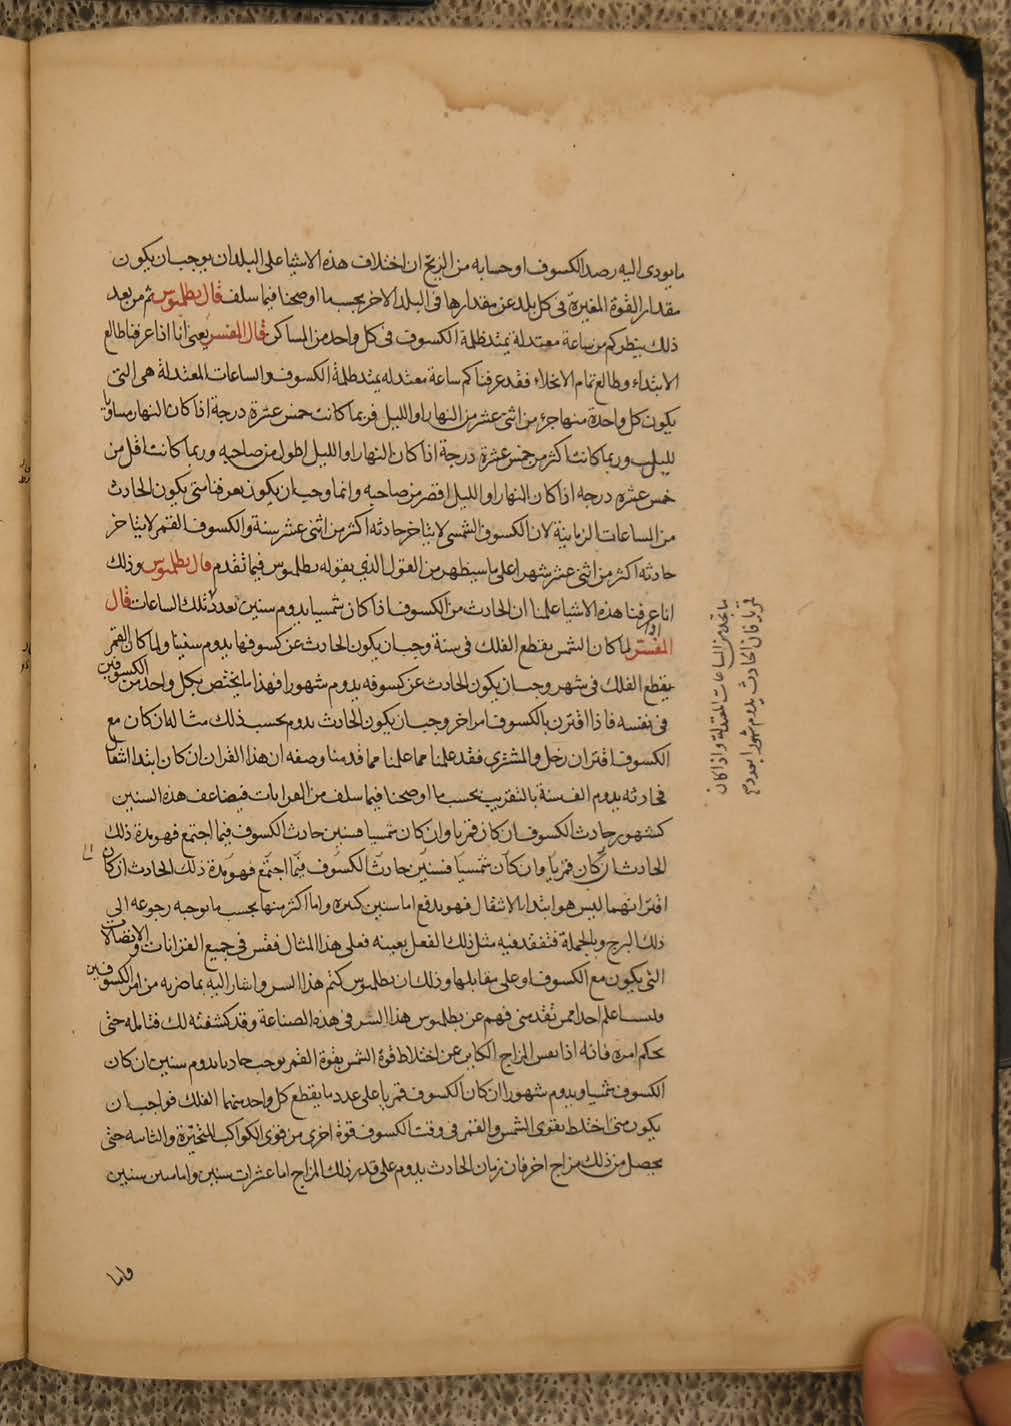 ما يودى اليه رصد الكسوف او حسابه من الزيج ان اختلاف هذه الاشيا على البلدان يوجب ان يكون
مقدار القوة المغيرة فى كل بلد عن مقدارها فى البلد الاخر بحسب ما اوضحنا فيما سلف قال بطلميوس ثم من بعد
ذلك ينظر كم من ساعة معتدلة يمتد ظلمة الكسوف فى كل واحد من المساكن قال المفسر يعنى انا اذا عرفنا طالع
الابتداء وطالع تمام الانجلاء فقد عرفنا كم ساعة معتدله يمتد ظلمة الكسوف والساعات المعتدلة هى التى
يكون كل واحدة منها جزء من اثنى عشر من النهار او الليل فربما كانت خمس عشرة درجة اذا كان النهار مساويا
لليل وربما كانت اكثر من خمس عشرة درجة اذا كان النهار او الليل اطول من صاحبه وربما كانت اقل من
خمس عشره درجه اذا كان النهار او الليل اقصر من صاحبه وانما وجب ان يكون يعرفنا متى يكون الحادث
من الساعات الزمانية لان الكسوف الشمسى لا يتاخر حادثه اكثر من اثنى عشر سنة والكسوف القمر لا يتاخر
حادثه اكثر من اثنى عشر شهرا على ما سيظهر من القول الذي يقوله بطلميوس فيما تقدم قال بطلميوس وذلك
انا عرفنا هذه الاشيا علمنا ان الحادث من الكسوف اذا كان شمسيا يدوم سنين بعدد تلك الساعات قال
المفسر لما كان الشمس يقطع الفلك فى سنة وجب ان يكون الحادث عن كسوفها يدوم سنينا ولما كان القمر
يقطع الفلك فى شهر وجب ان يكون الحادث عن كسوفه يدوم شهورا فهذا ما يختص بكل واحد من الكسوفين
فى نفسه فاذا اقترن بالكسوف امر اخر وجب ان يكون الحادث يدوم بحسب ذلك مثاله ان كان مع
الكسوف اقتران زحل والمشترى فقد علمنا مما علمنا مما قدمنا وصفه ان هذا القران ان كان ابتدا انتقال
فحادثه يدوم الف سنة بالتقريب بحسب ما اوضحنا فيما سلف من القرانات فيضاعف هذه السنين
كشهور حادث الكسوف ان كان قمريا وان كان شمسيا فسنين حادث الكسوف فيما اجتمع فهو مدة ذلك
الحادث ان كان قمريا وان كان شمسيا فسنين حادث الكسوف فيما اجتمع فهو مدة ذلك الحادث ان كان
اقترانهما ليس هو ابتدا بالانتقال فهو يدفع اما سنين كثيره واما اكثر منها بحسب ما يوجبه رجوعه الى
ذلك البرج وبالجملة فتفقد فيه مثل ذلك الفعل بعينه فعلى هذا المثال فقس فى جميع القرانات والاتصالات
التى يكون مع الكسوف او على مقابلها وذلك ان بطلميوس كتم هذا السر واشار اليه بما ضربه من امر الكسوفين
ولست اعلم احدا ممن تقدمنى فهم عن بطلميوس هذا السر فى هذه الصناعة وقد كشفته لك فتامله حتى
يحكم امره فانه اذا المزاج الكاين عن اختلاط قوة الشمس بقوة القمر يوجب حادثا يدوم سنين ان كان
الكسوف شمسيا ويدوم شهورا ان كان الكسوف قمريا على عدد ما يقطع كل واحد منهما الفلك فواجب ان
يكون متى اختلط بقوى الشمس والقمر فى وقت الكسوف قوة اخرى من قوى الكواكب المتحيرة والثابته حتى
يحصل من ذلك مزاج اخر فان زمان الحادث يدوم على قدر ذلك المزاج اما عشرات سنين واما سنين
واما
ما تجده من الساعات المعتدلة واذا كان
قمريا فان الحادث يدوم شهورا بعدد